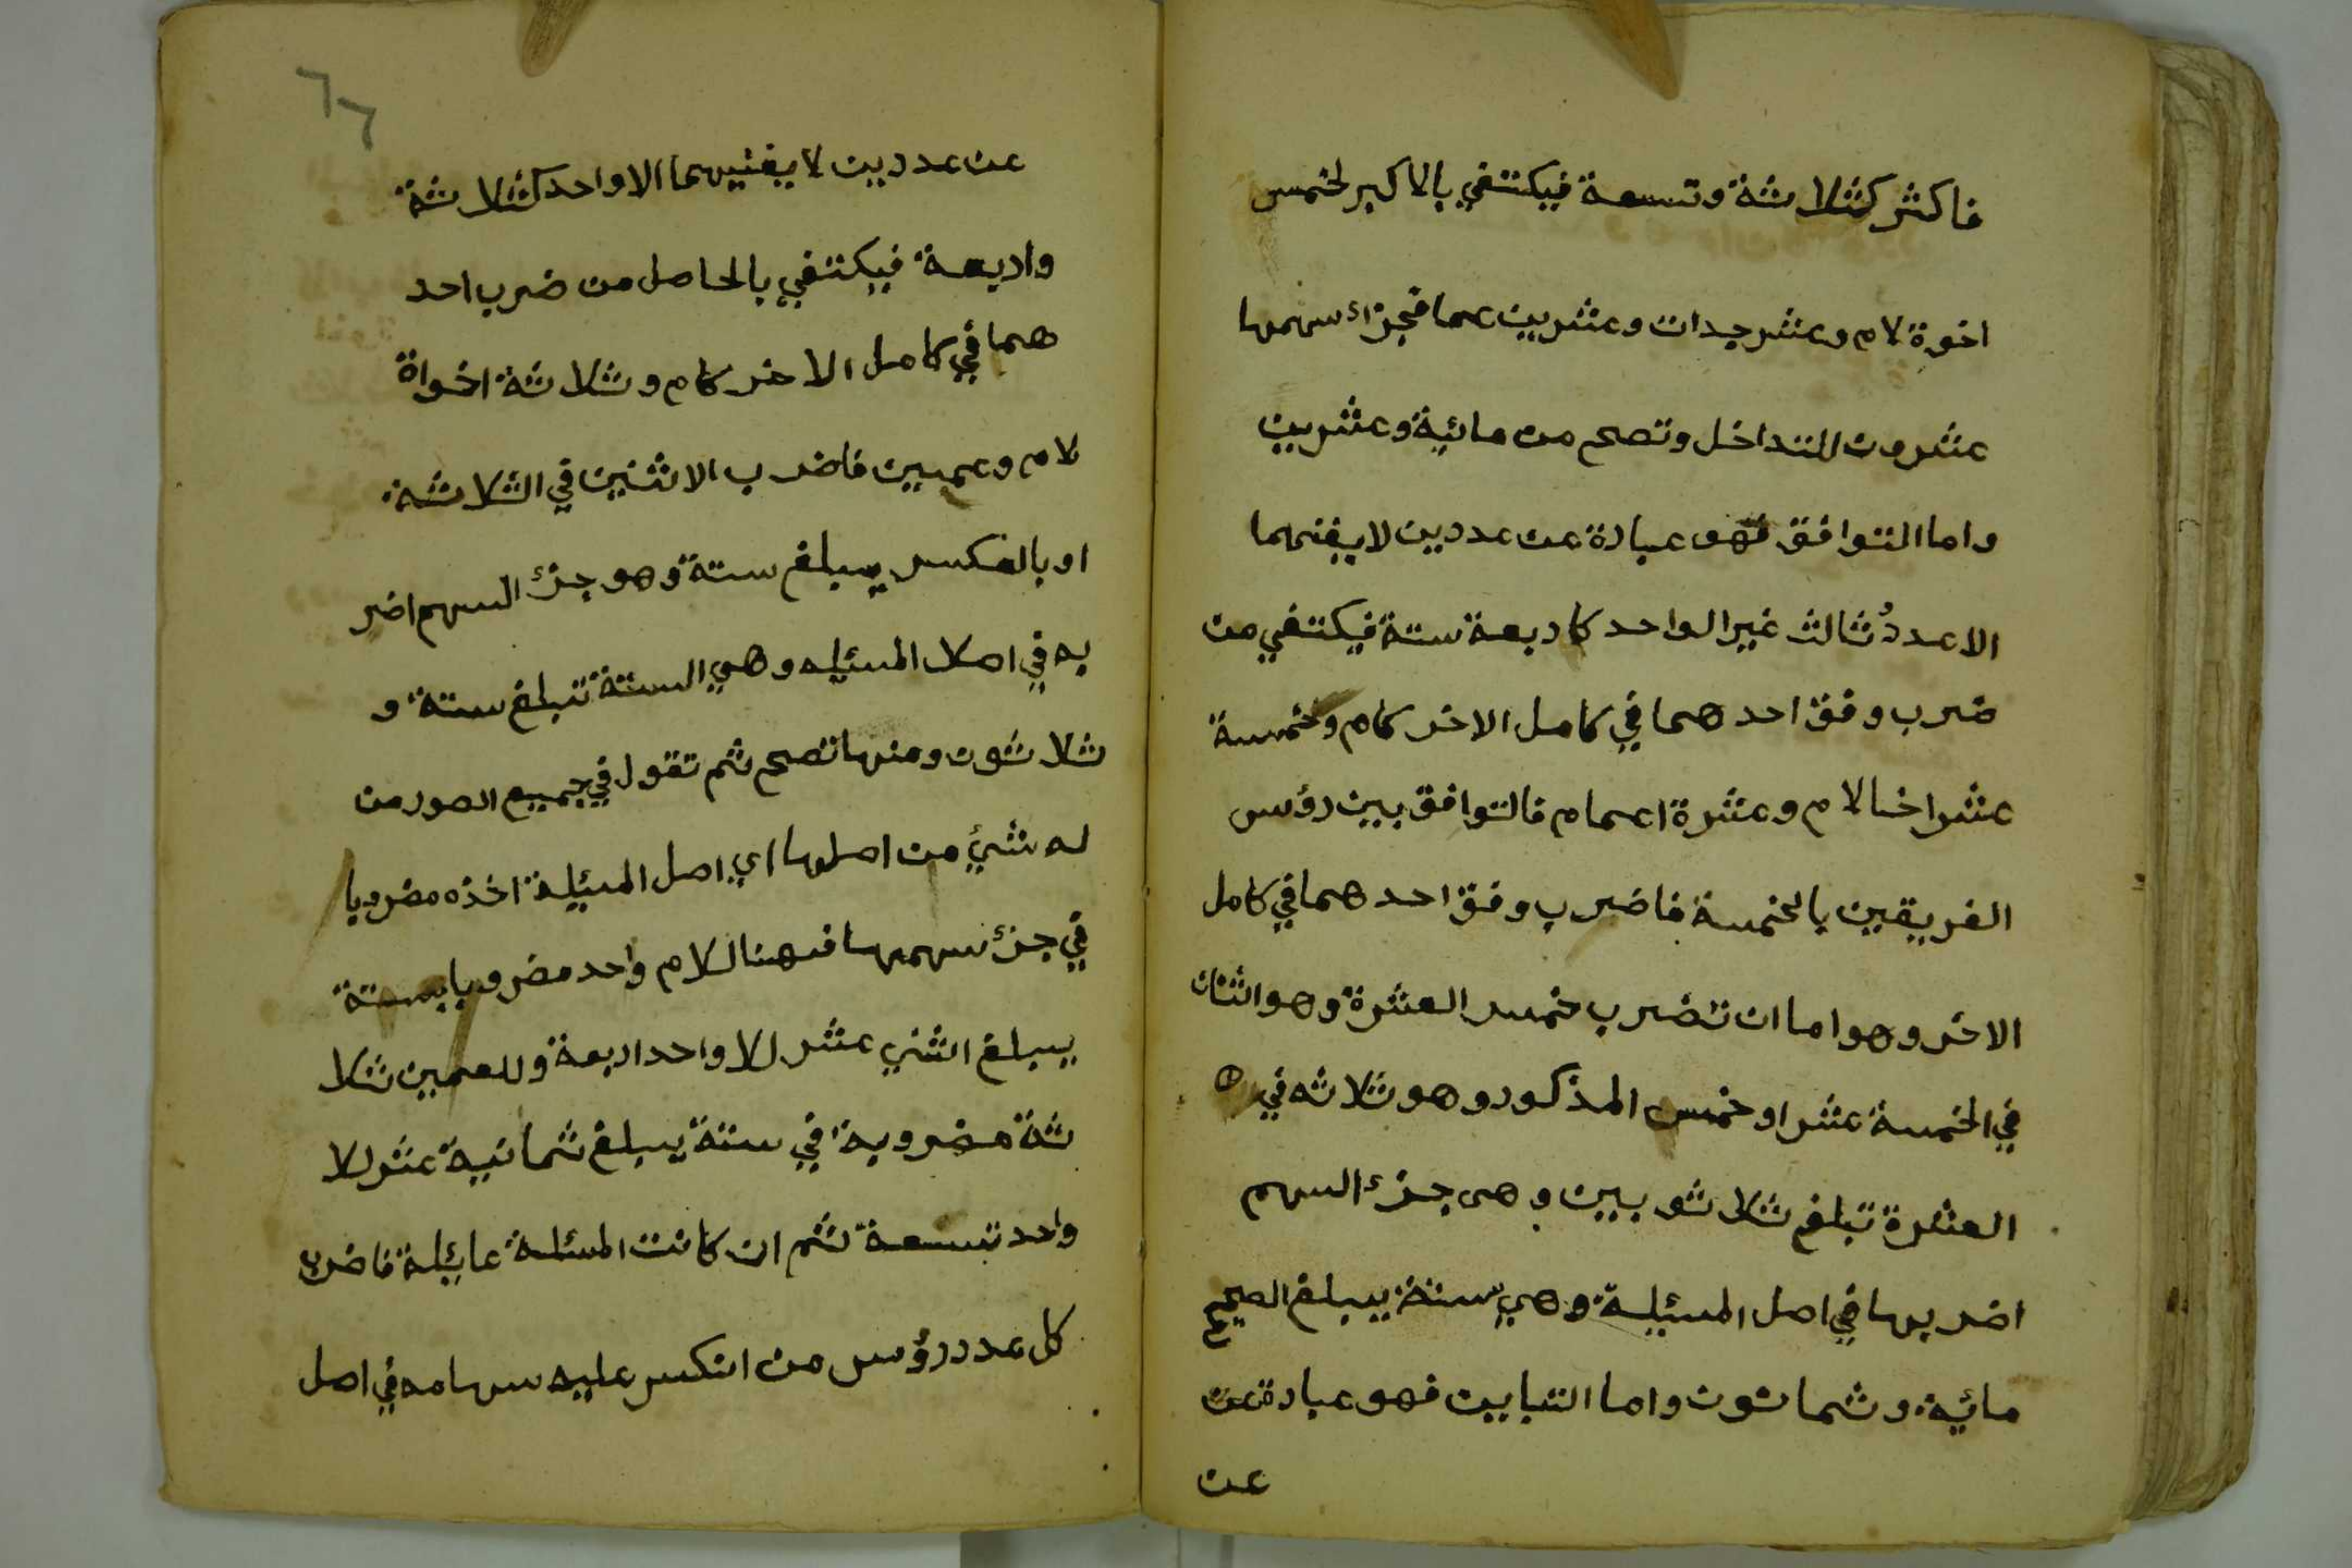 فاكثر كثلاثة وتسعة فيكتفي بالاكبر لخمس
اخوة لام وعشر جدات وعشرين عما فجزاء سهمها
عشرون للتداخل وتصح من مائية وعشرين
واما التوافق فهو عبارة عن عددين لا يفنهما
الا عددُ ثالث غير الواحد كاربعة ستة فيكتفي من
ضرب وفق احدهما في كامل الاخر كام وخمسة
عشر اخا لام وعشرة اعمام فالتوافق بين رؤس
الفريقين بالخمسة فاضرب وفق احدهما في كامل
الاخر وهو اما ان تضرب خمس العشرة وهو اثنان
في الخمسة عشر او خمس المذكور وهو ثلاثه في
العشرة تبلغ ثلاثوبين وهى جزء السهم
اضربها في اصل المسئيلة وهي ستة يبلغ الصحيح
مائية وثمانون واما التباين فهو عبارة عن
عن
٦٦
عن عددين لا يفنيهما الا واحد كثلاثة
واربعة فيكتفي بالحاصل من ضرب احد
هما في كامل الاخر كام وثلاثة اخواة
لام وعمين فاضرب الاثنين في الثلاثة
او بالعكس يبلغ ستة وهو جزء السهم اضر
به في اصلا المسئيله وهي الستة تبلغ ستة و
ثلاثون ومنها تصح ثم تقول في جميع الصور من
له شيئ من اصلها اي اصل المسئيلة اخذه مضروبا
في جزء سهمها فهنا للام واحد مضروبا بستة
يبلغ اثني عشر للاواحد اربعة وللعمين ثلا
ثة مضروبة في ستة يبلغ ثمانية عشر للا
واحد تسعة ثم ان كانت المسئلة عايئلة فاضرب
كل عدد رؤس من انكسر عليه سهامه في اصل